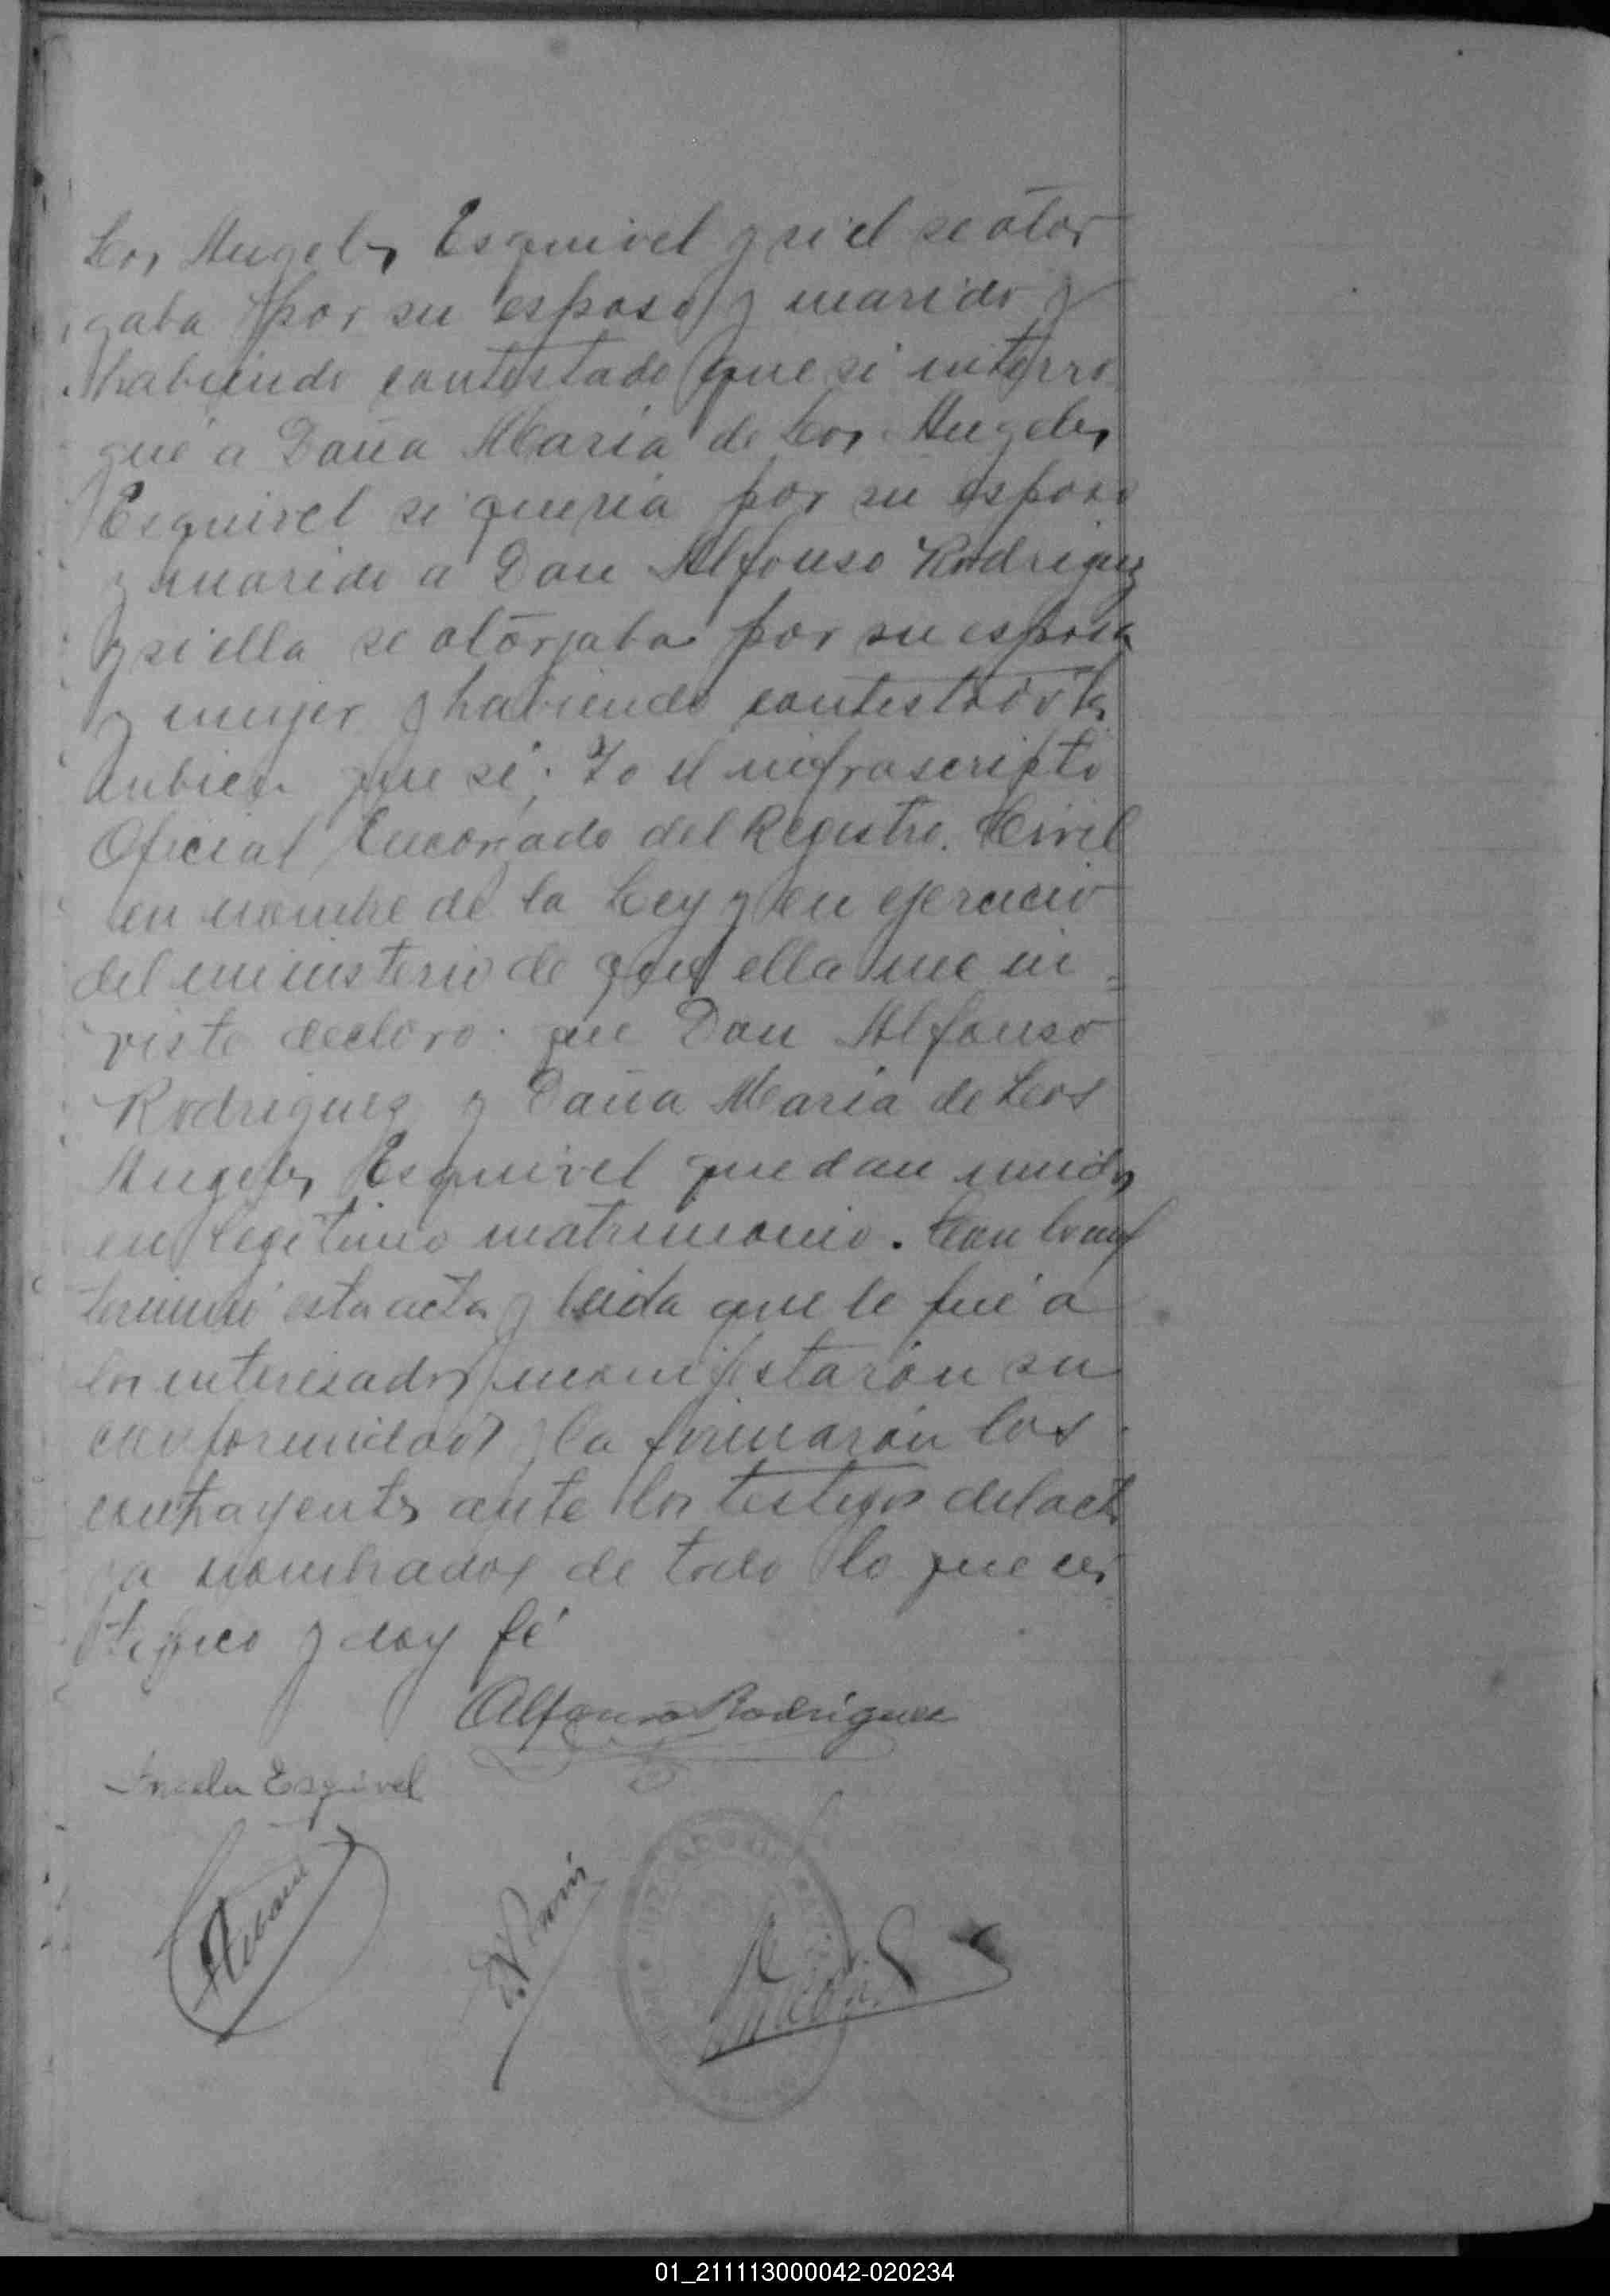 Los Angeles Esquivel y si el se otor
gaba por su esposo y marido y
habiendo contestado que si interro
gué a Doña Maria de Los Angeles
Esquivel si queria por su esposo
y marido a Don Alfonso Rodriguez
y si ella se otorgaba por su esposa
y mujer y habiendo contestado ta
mbien que si; Yo el infrascripto
Oficial Encargado del Registro Civil
en nombre de la Ley y en ejercicio
del ministerio de que ella me in
viste declaro que Don Alfonso
Rodriguez y Doña Maria de Los
Angeles Esquivel quedan unidos
en legitimo matrimonio. Con lo que
terminó esta acta y leida que le fué a
los interesados manifestarón su
conformidad y la firmarón los
contrayentes ante los testigos del acto
ya nombrados de todo lo que cer
tifico y doy fé
Alfonso Rodriguez
Angela Esquivel